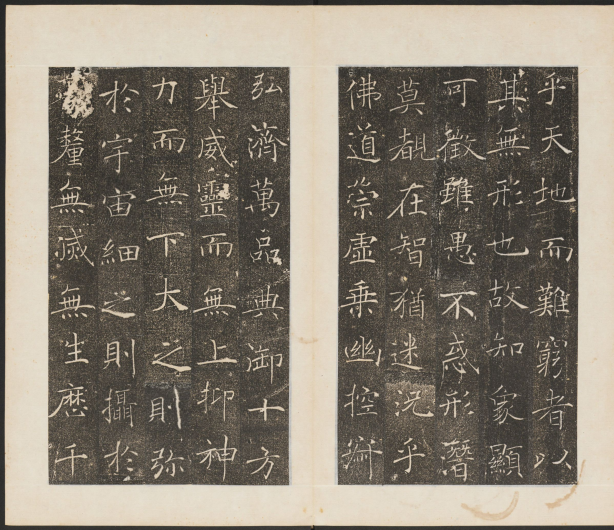 乎天地而難窮者以
其無形也故知象顯
可徵雖愚不惑形潛
莫覩在智猶迷況乎
佛道崇虛乘幽控寂
弘濟萬品典御十方
舉威靈而無上抑神
力而無下大之則弥
於宇宙細之則攝於
釐無滅無生歷千